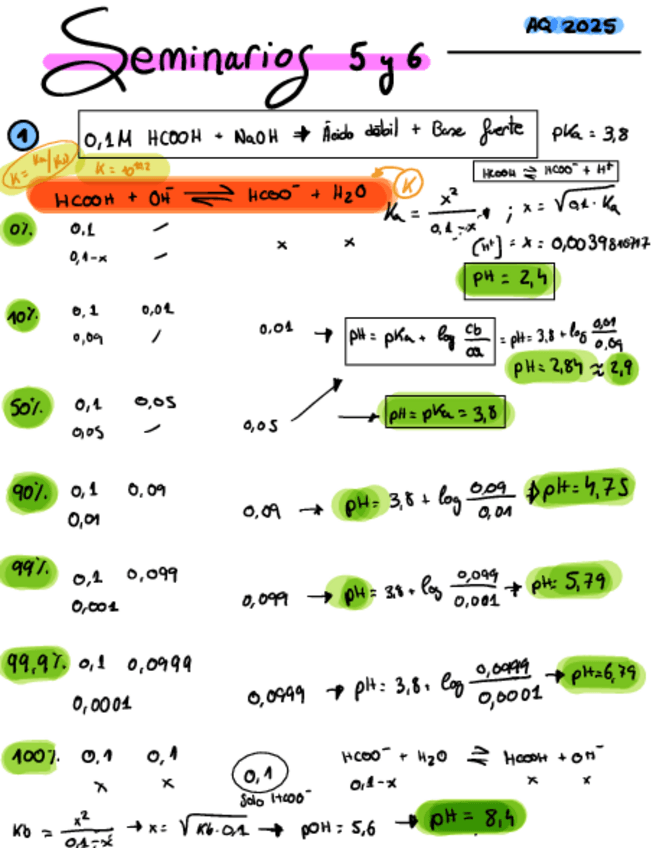 AQ 2025
Seminarios 5 y 6
1 0,1M HCOOH + NaOH → Ácido débil + Base fuerte pKa = 3,8
K = Ka/Kw K = 10^10,2 HCOOH ⇌ HCOO⁻ + H⁺
HCOOH + OH⁻ ⇌ HCOO⁻ + H₂O K
Ka = x²/0,1-x ; x = √0,1·Ka
0% 0,1 /
0,1-x / x x [H⁺] = x = 0,0039810717
pH = 2,4
10% 0,1 0,01
0,09 / 0,01 → pH = pKa + log cb/ca = pH = 3,8 + log 0,01/0,09
pH = 2,84 ≈ 2,9
50% 0,1 0,05
0,05 / 0,05 → pH = pKa = 3,8
90% 0,1 0,09
0,01 0,09 → pH = 3,8 + log 0,09/0,01 → pH = 4,75
99% 0,1 0,099
0,001 0,099 → pH = 3,8 + log 0,099/0,001 → pH = 5,79
99,9% 0,1 0,0999
0,0001 0,0999 → pH = 3,8 + log 0,0999/0,0001 → pH = 6,79
100% 0,1 0,1 0,1 HCOO⁻ + H₂O ⇌ HCOOH + OH⁻
x x Solo HCOO⁻ 0,1-x x x
Kb = x²/0,1-x → x = √Kb·0,1 → pOH = 5,6 → pH = 8,4